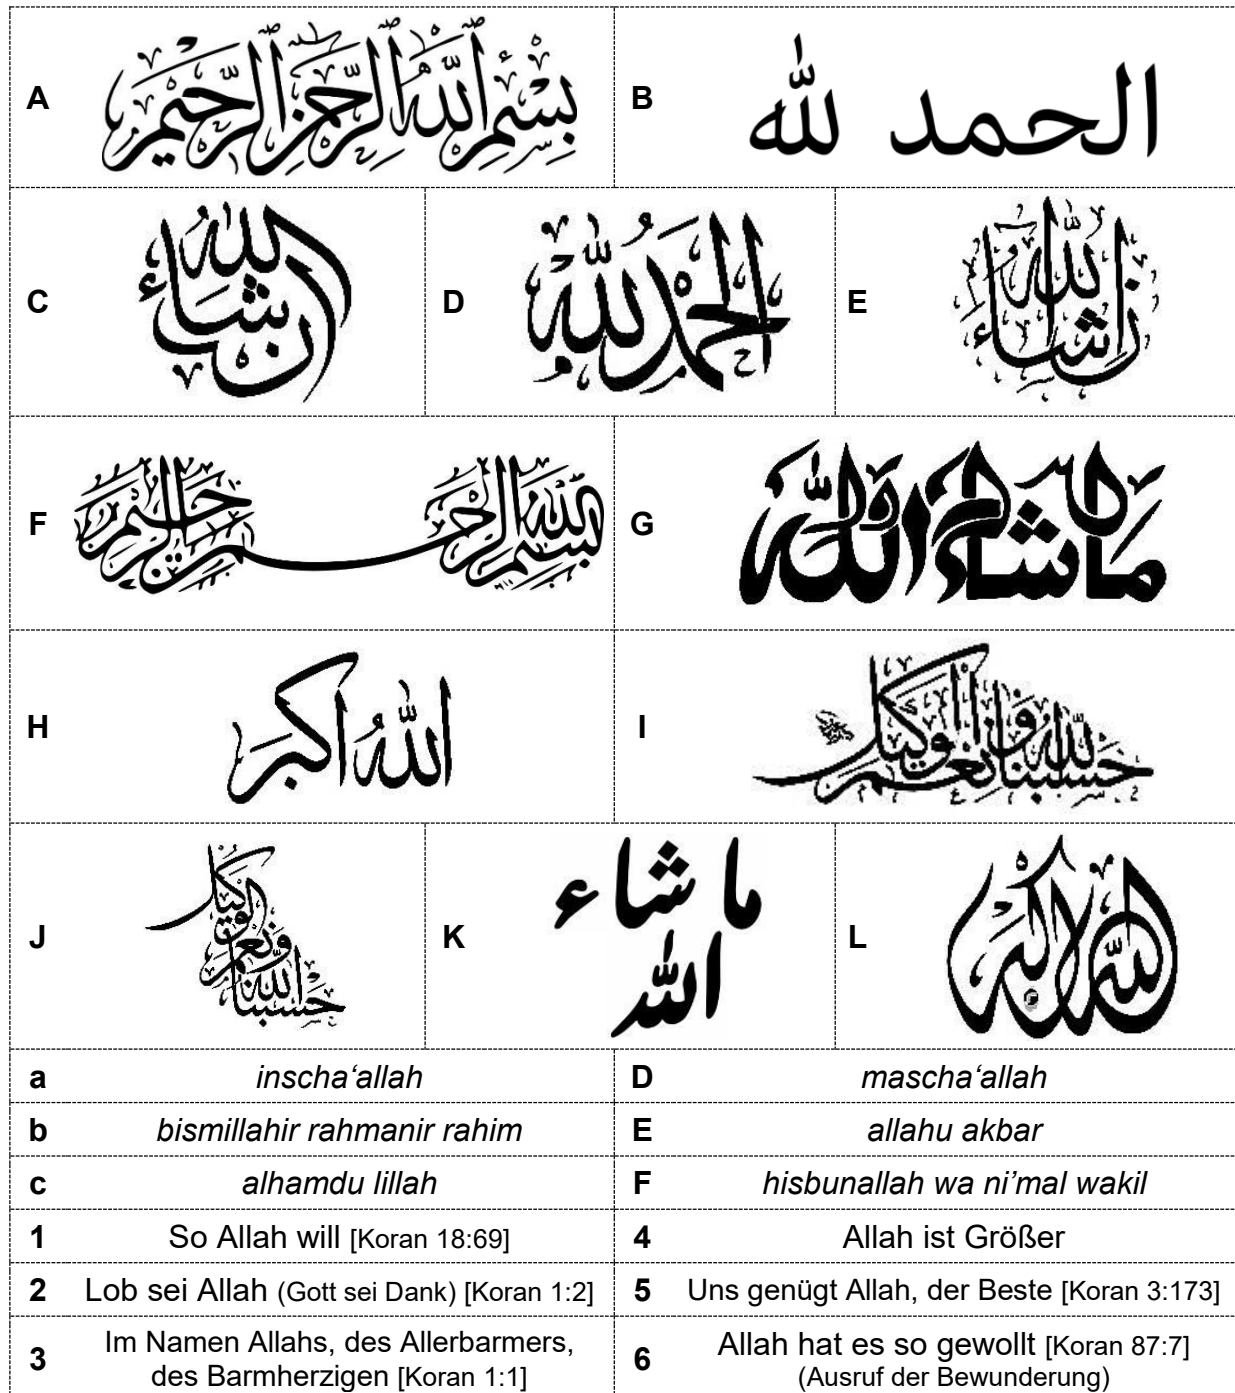 A بِسْمِ اللَّهِ الرَّحْمَٰنِ الرَّحِيمِ
B الحمد لله
C ان شاء الله
D الحمد لله
E ان شاء الله
F بسم الله الرحمن الرحيم
G ما شاء الله
H الله اكبر
I حسبنا الله ونعم الوكيل
J حسبنا الله ونعم الوكيل
K ما شاء
الله
L الله اكبر
a inscha‘allah
D mascha‘allah
b bismillahir rahmanir rahim
E allahu akbar
c alhamdu lillah
F hisbunallah wa ni’mal wakil
1 So Allah will [Koran 18:69]
4 Allah ist Größer
2 Lob sei Allah (Gott sei Dank) [Koran 1:2]
5 Uns genügt Allah, der Beste [Koran 3:173]
3 Im Namen Allahs, des Allerbarmers,
des Barmherzigen [Koran 1:1]
6 Allah hat es so gewollt [Koran 87:7]
(Ausruf der Bewunderung)